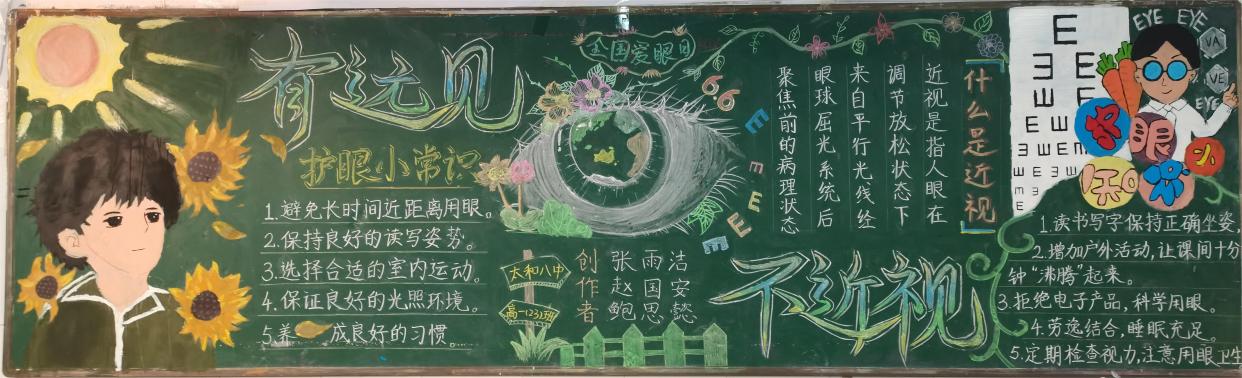 有远见
护眼小常识
1.避免长时间近距离用眼。
2.保持良好的读写姿势。
3.选择合适的室内运动。
4.保证良好的光照环境。
5.养成良好的习惯。
全国爱眼日
太和八中
高一(23)班
创作者
张雨洁
赵国安
鲍思懿
E
E
E
E
E
「什么是近视」
近视是指人眼在
调节放松状态下
来自平行光线经
眼球屈光系统后
聚焦前的病理状态
不近视
E
E E
E E
E E E
E E E M
EYE EYE
VA
VE
EYE
护眼小知识
1.读书写字保持正确坐姿,
2.增加户外活动,让课间十分
钟“沸腾”起来。
3.拒绝电子产品,科学用眼。
4.劳逸结合,睡眠充足。
5.定期检查视力,注意用眼卫生